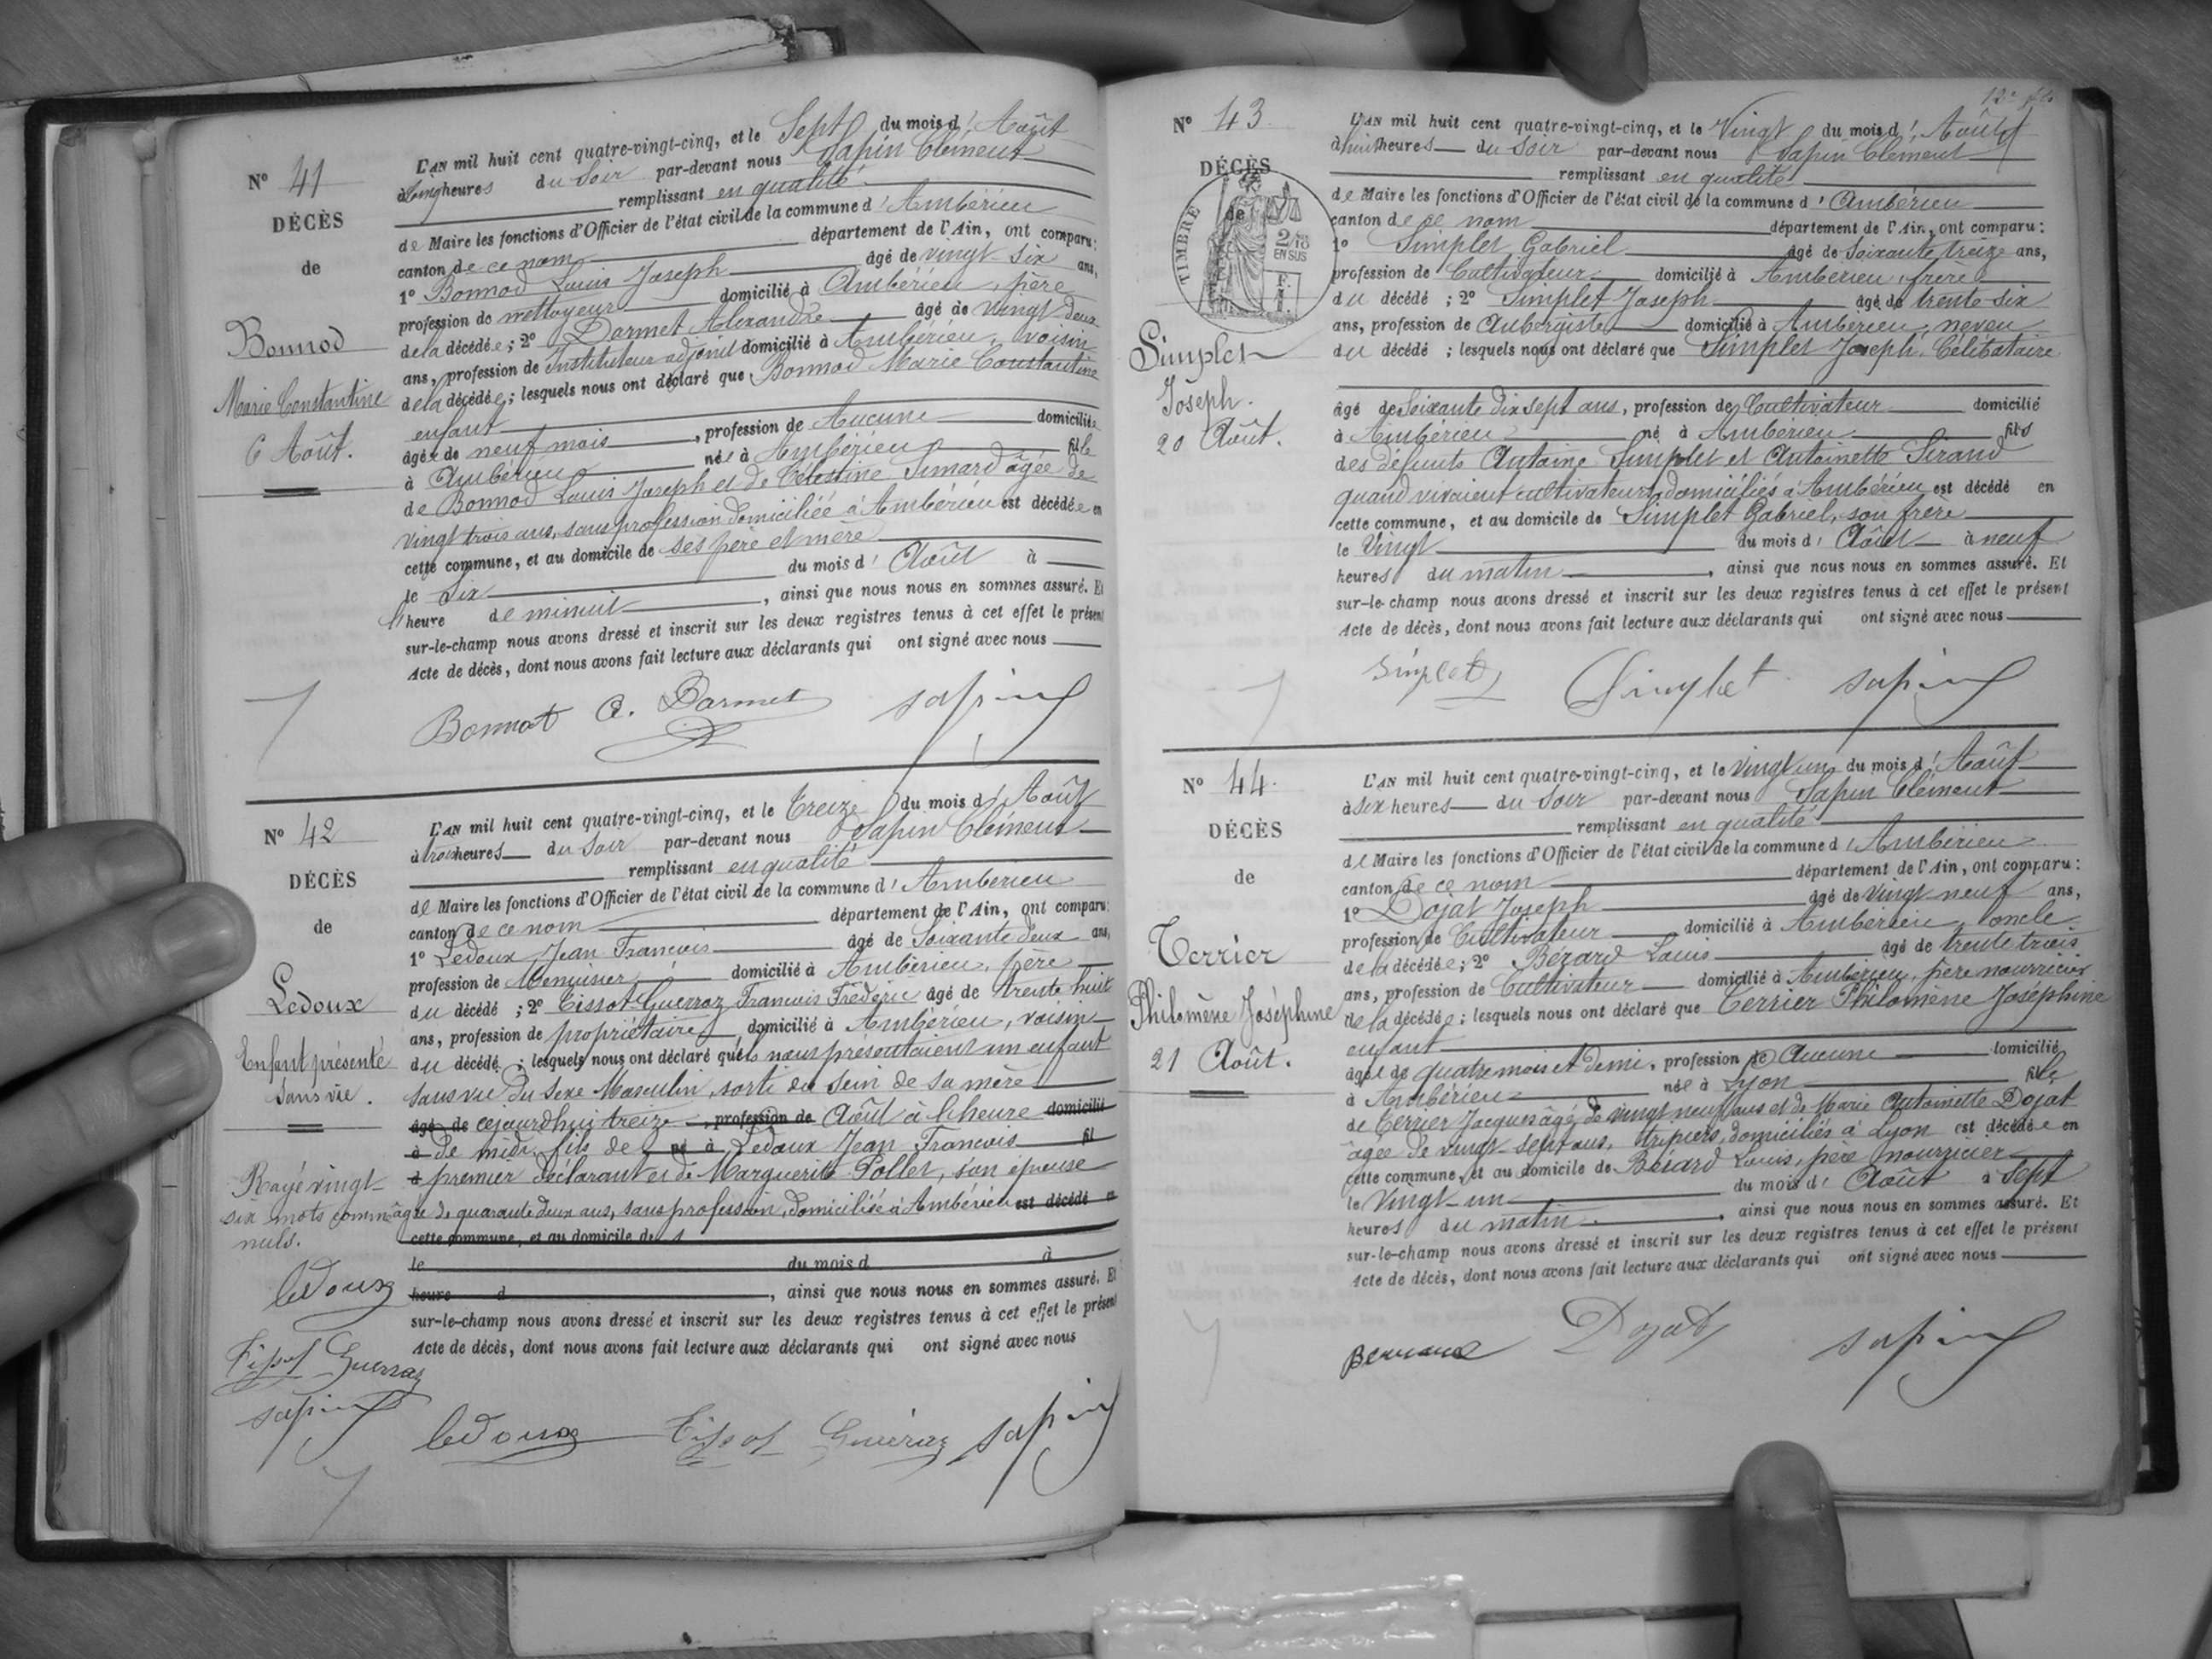 N° 41
DÉCÈS
de
Bonnod
Marie Constantine
6 Août.
L'AN mil huit cent quatre-vingt-cinq, et le Sept du mois d'Août
à cinq heures du Soir par-devant nous Sapin Clément
remplissant en qualité
de Maire les fonctions d'Officier de l'état civil de la commune d'Ambérieu
canton de ce nom département de l'Ain, ont comparu:
1° Bonnod Louis Joseph âgé de vingt six ans,
profession de nettoyeur domicilié à Ambérieu, père
de la décédée; 2° Dormet Alexandre âgé de vingt deux
ans, profession de Instituteur adjoint domicilié à Ambérieu, voisin
de la décédée; lesquels nous ont déclaré que Bonnod Marie Constantine
enfant
âgée de neuf mois, profession de Aucune domiciliée
à Ambérieu née à Ambérieu fille
de Bonnod Louis Joseph et de Célestine Simard âgée de
vingt trois ans, sans profession domiciliée à Ambérieu est décédée en
cette commune, et au domicile de ses père et mère
le Six du mois d'Août à
heure de minuit, ainsi que nous nous en sommes assuré. Et
sur-le-champ nous avons dressé et inscrit sur les deux registres tenus à cet effet le présent
Acte de décès, dont nous avons fait lecture aux déclarants qui ont signé avec nous
Bonnot A. Dormet Sapin
N° 42
DÉCÈS
de
Ledoux
Enfant présenté
sans vie.
Rayé vingt
six mots comme
nuls.
ledoux
Tissot Guerraz
Sapin
L'AN mil huit cent quatre-vingt-cinq, et le Treize du mois d'Août
à trois heures du Soir par-devant nous Sapin Clément
remplissant en qualité
de Maire les fonctions d'Officier de l'état civil de la commune d'Ambérieu
canton de ce nom département de l'Ain, ont comparu:
1° Ledoux Jean François âgé de Soixante deux ans,
profession de Menuisier domicilié à Ambérieu, père
du décédé; 2° Tissot Guerraz François Frédéric âgé de trente huit
ans, profession de propriétaire domicilié à Ambérieu, voisin
du décédé; lesquels nous ont déclaré qu'ils nous présentaient un enfant
sans vie du sexe Masculin, sorti du sein de sa mère
âgé de cejourd'hui treize, profession de Août à 1 heure domicilié
à de midi, fils de né à Ledoux Jean François fil
d premier déclarant et de Marguerite Pollet, son épouse
âgée de quarante deux ans, sans profession, domiciliée à Ambérieu est décédé en
cette commune, et au domicile de
le du mois d à
heure d, ainsi que nous nous en sommes assuré. Et
sur-le-champ nous avons dressé et inscrit sur les deux registres tenus à cet effet le présent
Acte de décès, dont nous avons fait lecture aux déclarants qui ont signé avec nous
ledoux Tissot Guerraz Sapin
N° 43
DÉCÈS
de
TIMBRE
2/10
EN SUS
Simplet
Joseph.
20 Août.
L'AN mil huit cent quatre-vingt-cinq, et le Vingt du mois d'Août
à huit heures du Soir par-devant nous Sapin Clément
remplissant en qualité
de Maire les fonctions d'Officier de l'état civil de la commune d'Ambérieu
canton de ce nom département de l'Ain, ont comparu:
1° Simplet Gabriel âgé de Soixante treize ans,
profession de Cultivateur domicilié à Ambérieu, frère
du décédé; 2° Simplet Joseph âgé de trente six
ans, profession de Aubergiste domicilié à Ambérieu, neveu
du décédé; lesquels nous ont déclaré que Simplet Joseph, Célibataire
âgé de Soixante dix sept ans, profession de Cultivateur domicilié
à Ambérieu né à Ambérieu fils
des défunts Antoine Simplet et Antoinette Sirand
quand vivaient cultivateurs domiciliés à Ambérieu est décédé en
cette commune, et au domicile de Simplet Gabriel, son frère
le Vingt du mois d'Août à neuf
heures du matin, ainsi que nous nous en sommes assuré. Et
sur-le-champ nous avons dressé et inscrit sur les deux registres tenus à cet effet le présent
Acte de décès, dont nous avons fait lecture aux déclarants qui ont signé avec nous
Simplet Simplet Sapin
N° 44
DÉCÈS
de
Terrier
Philomène Joséphine
21 Août.
L'AN mil huit cent quatre-vingt-cinq, et le Vingt un du mois d'Août
à Six heures du Soir par-devant nous Sapin Clément
remplissant en qualité
de Maire les fonctions d'Officier de l'état civil de la commune d'Ambérieu
canton de ce nom département de l'Ain, ont comparu:
1° Dojat Joseph âgé de vingt neuf ans,
profession de Cultivateur domicilié à Ambérieu, oncle
de la décédée; 2° Bérard Louis âgé de trente trois
ans, profession de Cultivateur domicilié à Ambérieu, père nourricier
de la décédée; lesquels nous ont déclaré que Terrier Philomène Joséphine
enfant
âgée de quatre mois et demi, profession de Aucune domicilié
à Ambérieu née à Lyon fille
de Terrier Jacques âgé de vingt neuf ans et de Marie Antoinette Dojat
âgée de vingt sept ans, tripiers domiciliés à Lyon est décédée en
cette commune, et au domicile de Bérard Louis, père nourricier
le Vingt-un du mois d'Août à Sept
heures du matin, ainsi que nous nous en sommes assuré. Et
sur-le-champ nous avons dressé et inscrit sur les deux registres tenus à cet effet le présent
Acte de décès, dont nous avons fait lecture aux déclarants qui ont signé avec nous
Dojat Sapin